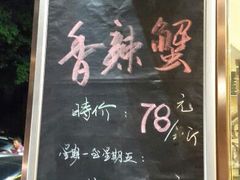 香辣蟹
時价：78元/公斤
星期一至星期五：